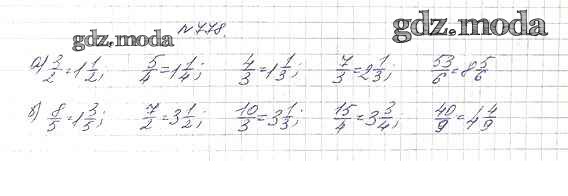 gdz.moda
№ 778.
gdz.moda
а) 3/2 = 1 1/2; 5/4 = 1 1/4; 4/3 = 1 1/3; 7/3 = 2 1/3; 53/6 = 8 5/6
б) 8/5 = 1 3/5; 7/2 = 3 1/2; 10/3 = 3 1/3; 15/4 = 3 3/4; 40/9 = 4 4/9